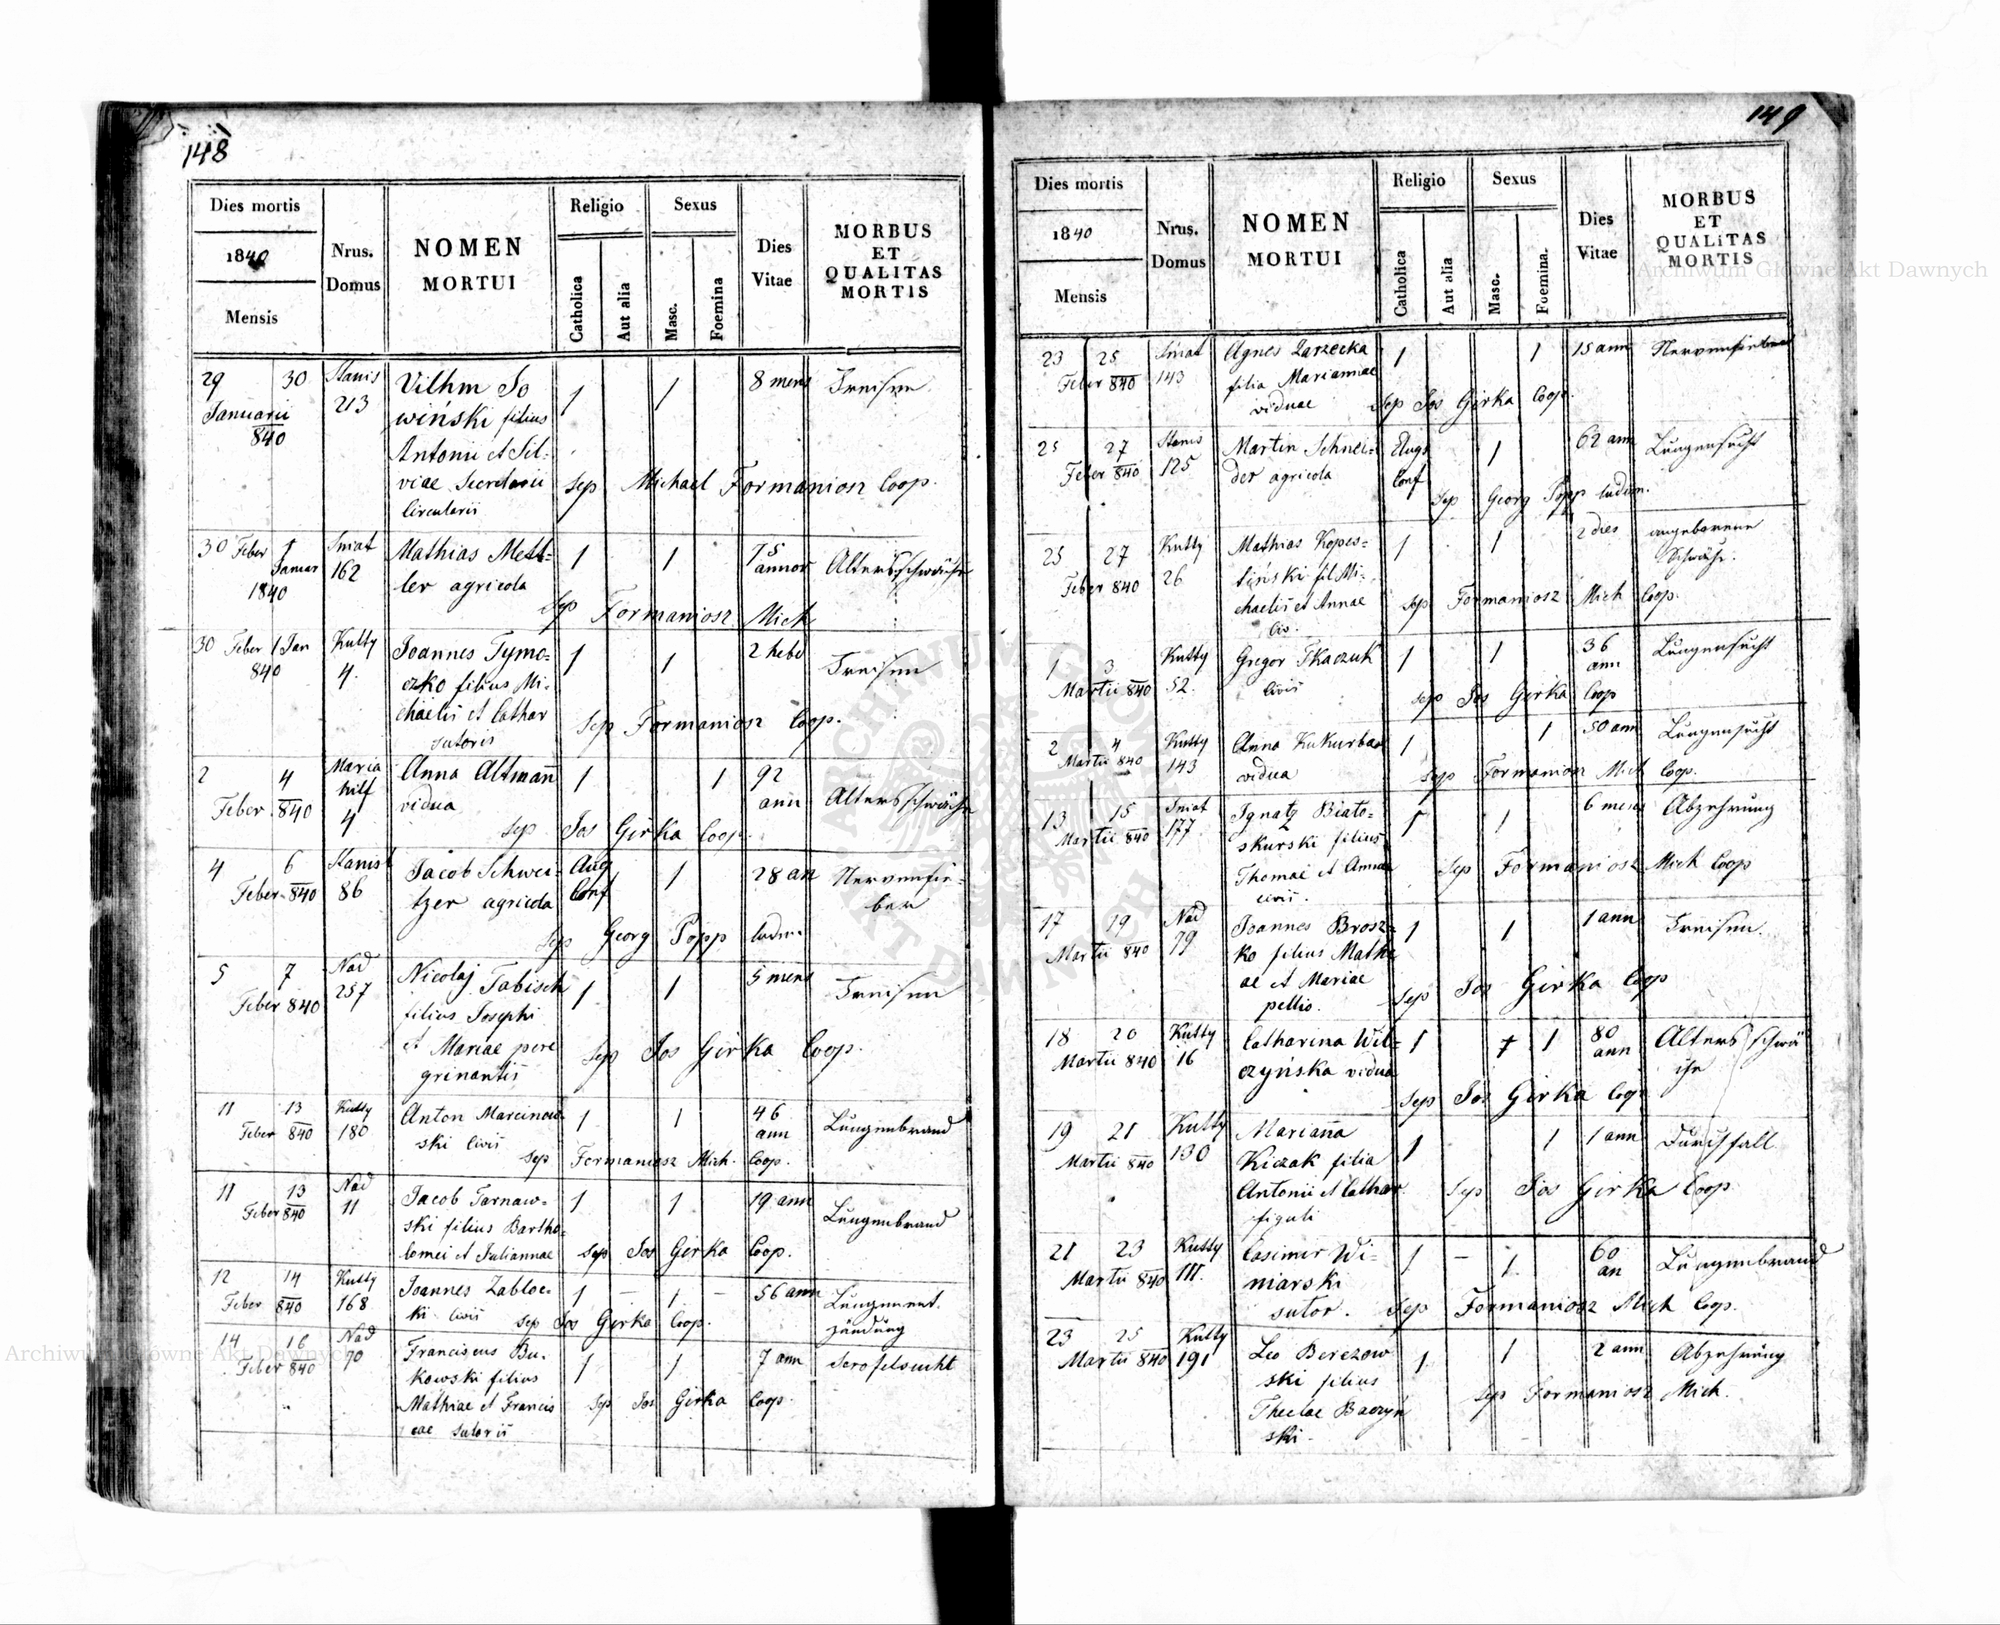 148
Dies mortis
1840
Mensis
Nrus.
Domus
NOMEN
MORTUI
Religio
Catholica
Aut alia
Sexus
Masc.
Foemina
Dies
Vitae
MORBUS
ET
QUALITAS
MORTIS
29 30 Stanis Vilhm So 1 1 8 mens Freisen
Januarii 213 wiński filius
840 Antonii et Sil-
viae Secretarii Sep Michael Formaniosz Coop.
Circularii
30 Feber 1 Sniat Mathias Mett- 1 1 75 Altersschwäche
Januar 162 ler agricola annor
1840 Sep Formaniosz Mich
30 Feber 1 Jan Kutty Joannes Tymo- 1 1 2 hebd Freisen
840 4. czko filius Mi-
chaelis et Cathar Sep Formaniosz Coop.
sutoris
2 4 Maria Anna Altmañ 1 1 92 Altersschwäche
Feber 840 hilf vidua ann
4 Sep Jos Girka Coop.
4 6 Stanisl Jacob Schwei- Aug 1 28 an Nervenfie-
Feber 840 86 tzer agricola Conf ber
Sep Georg Popp ludim
5 7 Nad Nicolaj Tabisch 1 1 5 mens Freisen
Feber 840 257 filius Josephi
et Mariae pere Sep Jos Girka Coop.
grinantis
11 13 Kutty Anton Marcinow 1 1 46 Lungenbrand
Feber 840 180 ski civis ann
Sep Formaniosz Mich. Coop.
11 13 Nad Jacob Tarnaw- 1 1 19 ann Lungenbrand
Feber 840 11 ski filius Bartho-
lomei et Juliannae Sep Jos Girka Coop.
12 14 Kutty Joannes Zabloc- 1 – 1 – 56 ann Lungenent.
Feber 840 168 ki civis Sep Jos Girka Coop. zündung
14 16 Nad Franciscus Bu- 1 1 7 ann Scrofelsucht
Feber 840 70 kowski filius
Mathiae et Francis Sep Jos Girka Coop.
cae sutoris
149
Dies mortis
1840
Mensis
Nrus.
Domus
NOMEN
MORTUI
Religio
Catholica
Aut alia
Sexus
Masc.
Foemina.
Dies
Vitae
MORBUS
ET
QUALITAS
MORTIS
23 25 Sniat Agnes Zarzecka 1 1 15 ann Nervenfieber
Feber 840 143 filia Mariannae
viduae Sep Jos Girka Coop.
25 27 Stanis Martin Schnei- Augs 1 62 ann Lungensucht
Feber 840 125 der agricola Conf
Sep Georg Popp ludim.
25 27 Kutty Mathias Kopes- 1 1 2 dies angeborene
Feber 840 26 tiński fil Mi- Schwäche.
chaelis et Annae Sep Formaniosz Mich Coop.
civ.
1 3 Kutty Gregor Tkaczuk 1 1 36 Lungensucht
Martii 840 52. civis ann
Sep Jos Girka Coop
2 4 Kutty Anna Kukurbas 1 1 50 ann Lungensucht
Martii 840 143 vidua Sep Formaniosz Mich Coop.
13 15 Sniat Ignatz Biato- 1 1 6 mens Abzehrung
Martii 840 177 skurski filius
Thomae et Annae Sep Formaniosz Mich Coop
civis.
17 19 Nad Joannes Brosz- 1 1 1 ann Freisen.
Martii 840 79 ko filius Mathi
ae et Mariae Sep Jos Girka Coop
pellio.
18 20 Kutty Catharina Wil- 1 1 80 Altersschwä
Martii 840 16 czyńska vidua ann che
Sep Jos Girka Coop
19 21 Kutty Mariaña 1 1 1 ann Durchfall
Martii 840 130 Kiczak filia
Antonii et Cathar Sep Jos Girka Coop
figuli
21 23 Kutty Casimir Wi- 1 – 1 60 Lungenbrand
Martii 840 111. niarski an
sutor. Sep Formaniosz Mich Coop.
23 25 Kutty Leo Berezow 1 1 2 ann Abzehrung
Martii 840 191 ski filius
Theclae Baczyń Sep Formaniosz Mich.
ski.
Archiwum Główne Akt Dawnych
Archiwum Główne Akt Dawnych
ARCHIWUM GŁÓWNE AKT DAWNYCH